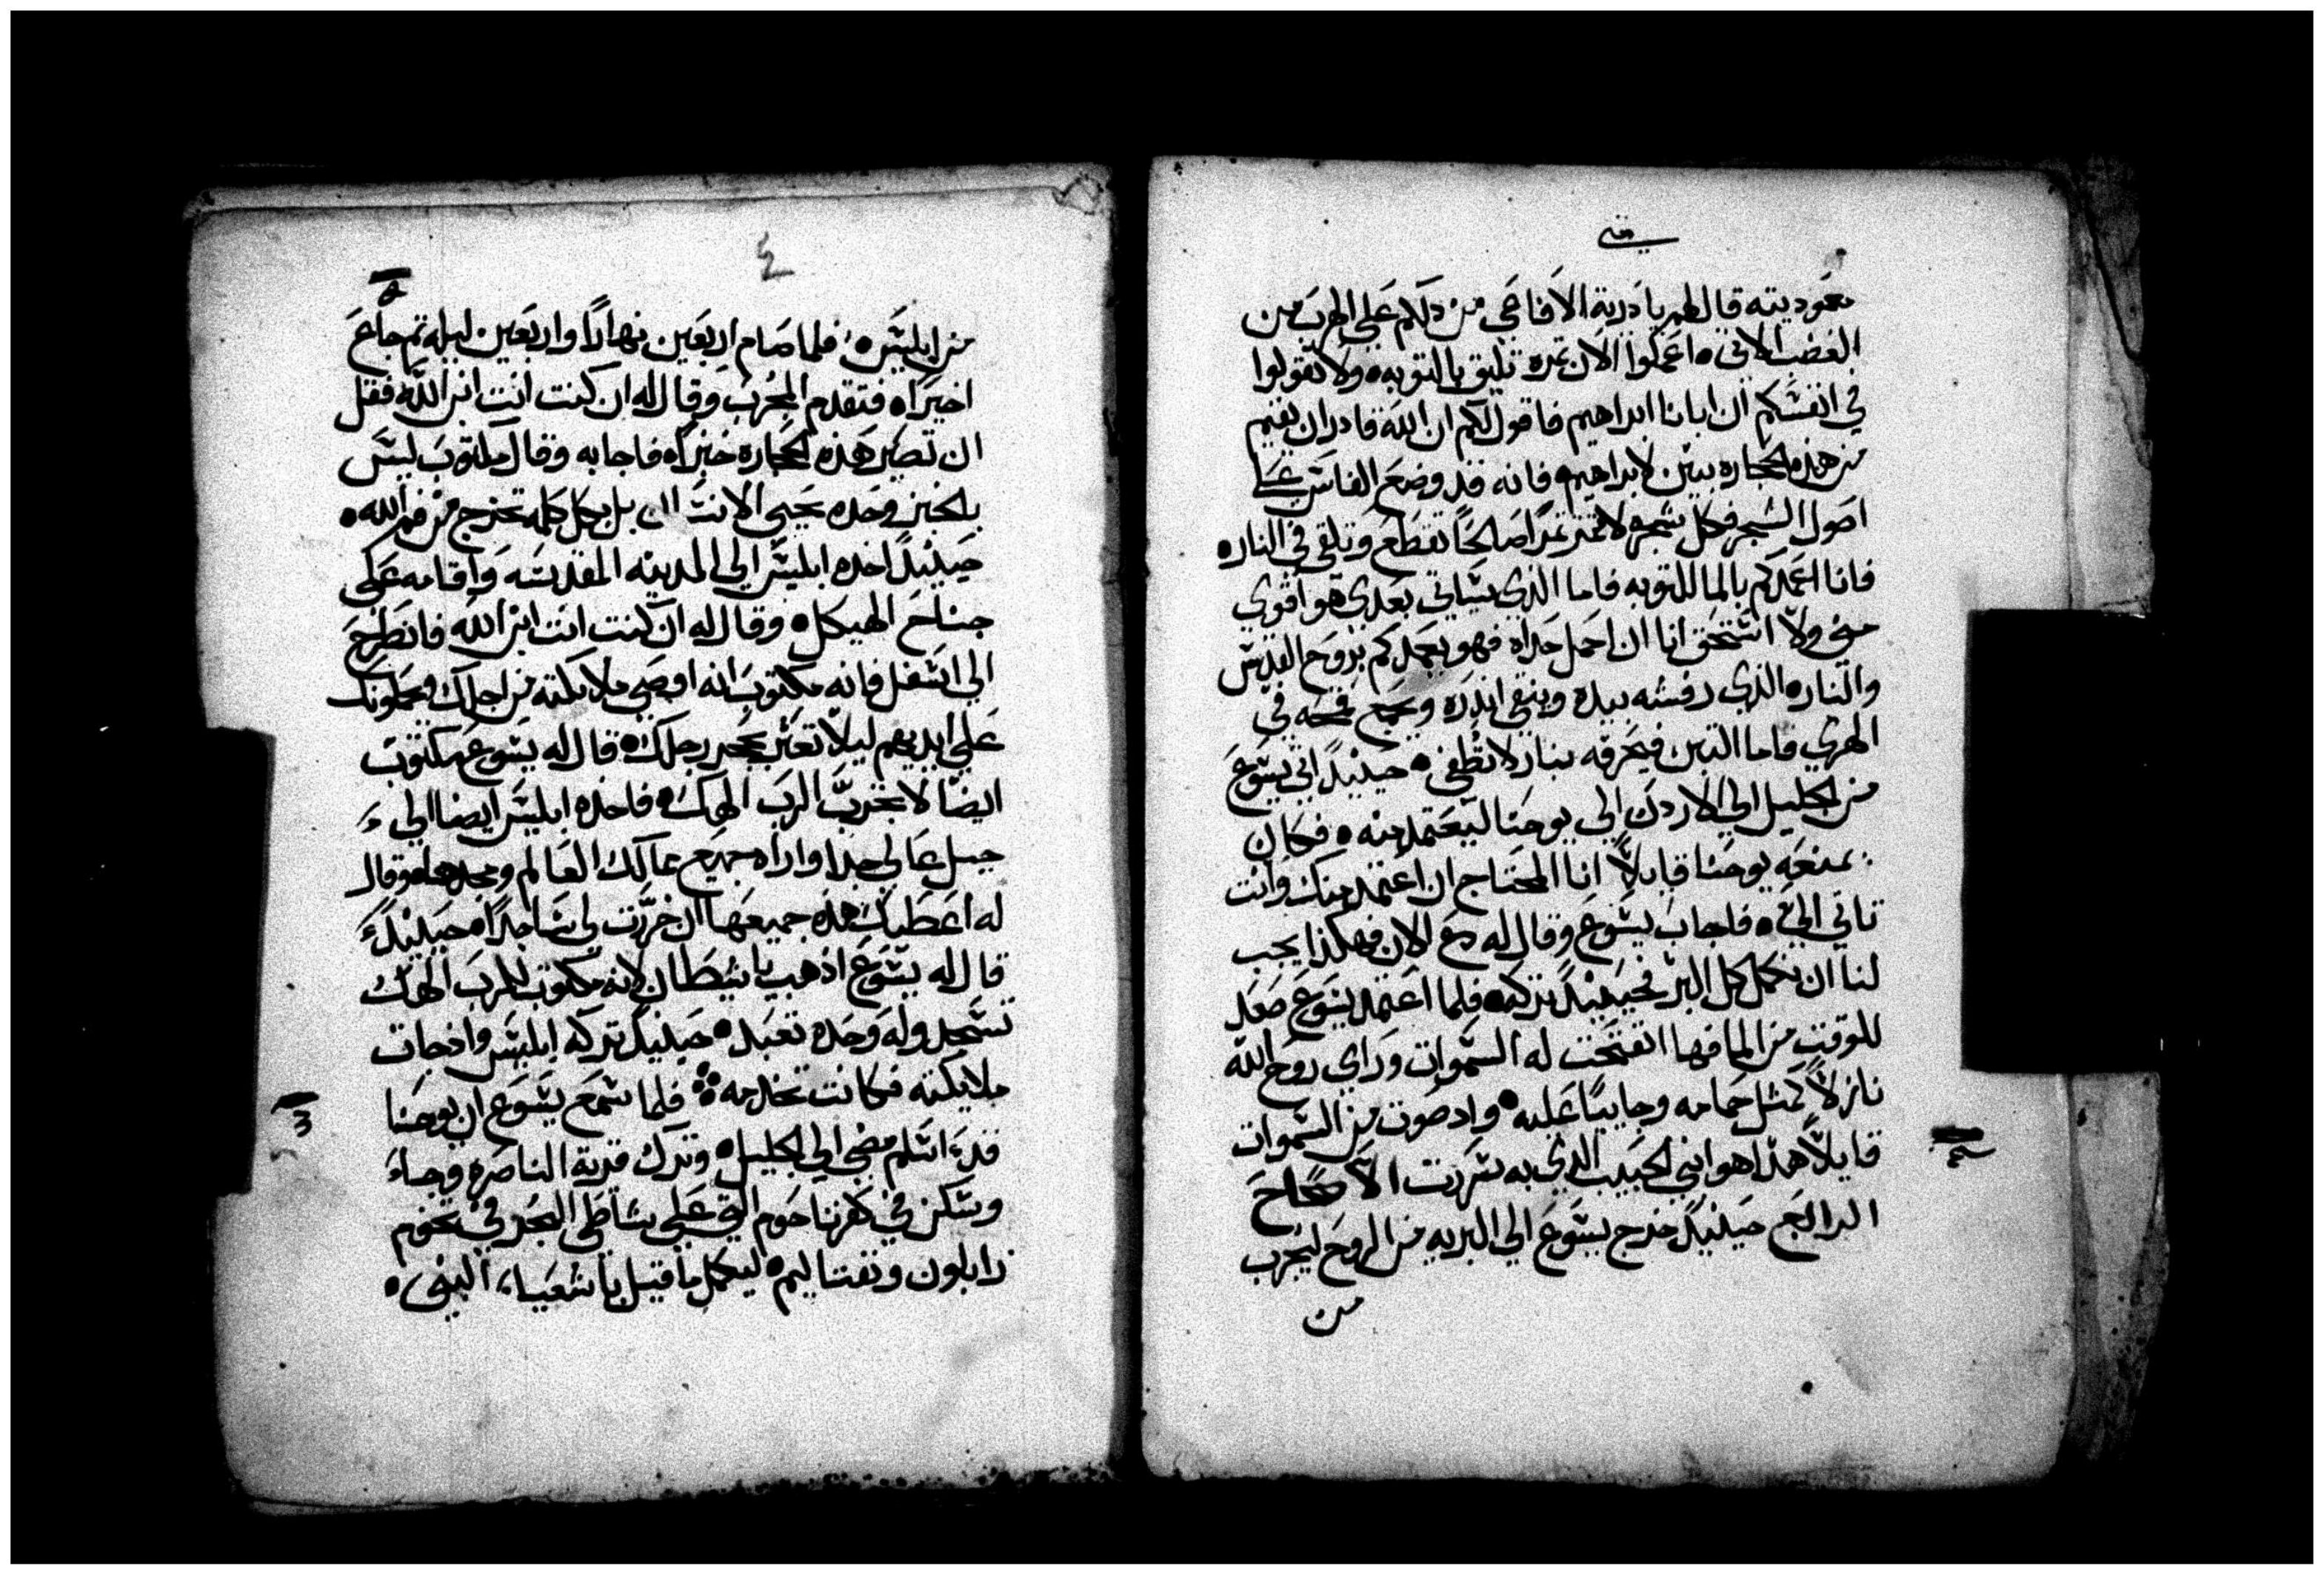 متى
معموديته قال لهم يا درية الافاعي من دلكم على الهرب من
الغضب الاتي اعملوا الان ثمره تليق بالتوبه ولا تقولوا
في انفسكم ان ابانا ابراهيم فاقول لكم ان الله قادر ان يقيم
من هذه الحجاره بنين لابراهيم فانه قد وضع الفاس على
اصول الشجر فكل شجره لا تثمر ثمرًا صالحًا تقطع وتلقى في النار
فانا اعمدكم بالما للتوبه فاما الذي سياتي بعدي هو اقوي
مني ولا استحق انا ان احمل حداه فهو يعمدكم بروح القدس
والنار الذي رفشه بيده وينقي اندره ويجمع قمحه في
الهري فاما التبن فيحرقه بنار لا تطفى حينيدًا اتي يسوع
من الجليل الي الاردن الي يوحنا ليعتمد منه فكان
يمنعه يوحنا قايلاً انا المحتاج ان اعتمد منك وانت
تاتي الي فاجاب يسوع وقال له دع الان فهكذا يجب
لنا ان نكمل كل البر فحينيدً تركه فلما اعتمد يسوع صعد
للوقت من الما فها انفتحت له السموات وراي روح الله
نازلاً كمثل حمامه وجاييًا عليه واد صوت من السموات
قايلاً هدا هو ابني الحبيب الدي به سررت الاصحاح
الرابع حينيدً خرج يسوع الي البريه من الروح ليجرب
من
٤
من ابليس فلما صام اربعين نهارًا واربعين ليله تم جاع
اخيرًا فتقدم المجرب وقال له ان كنت انت ابن الله فقل
ان تصير هذه الحجاره خبزًا فاجابه وقال مكتوب ليس
بالخبز وحده يحيى الانسان بل بكل كلمه تخرج من فم الله
حينيدً اخده ابليس الي المدينه المقدسه واقامه على
جناح الهيكل وقال له ان كنت انت ابن الله فانطرح
الي اسفل فانه مكتوب انه اوصي ملايكته من اجلك وتحملونك
علي ايديهم ليلا تعثر بحجر رجلك قال له يسوع مكتوب
ايضًا لا تجرب الرب الهك فاخده ابليس ايضا الي
جبل عالي جدا واراه جميع ممالك العالم ومجدها وقال
له اعطيك هذه جميعها ان خررت لي ساجدًا حينيدً
قال له يسوع ادهب يا شيطان لانه مكتوب للرب الهك
تسجد وله وحده تعبد حينيدً تركه ابليس وادجات
ملايكته فكانت تخدمه فلما سمع يسوع ان يوحنا
قد اسلم مضي الي الجليل وترك قرية الناصره وجاء
وسكن في كفرناحوم التي على شاطي البحر في تخوم
زابلون ونفتاليم ليكمل ما قيل باشعيا النبي